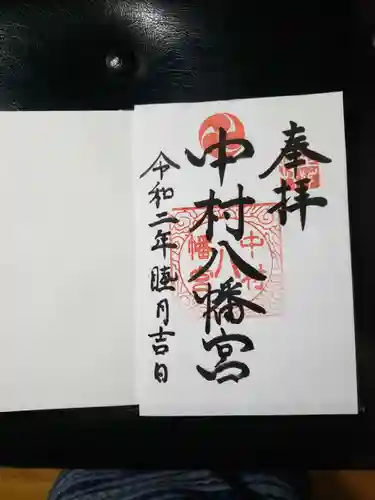 奉拝
中村八幡宮
令和二年睦月吉日
中村八幡宮